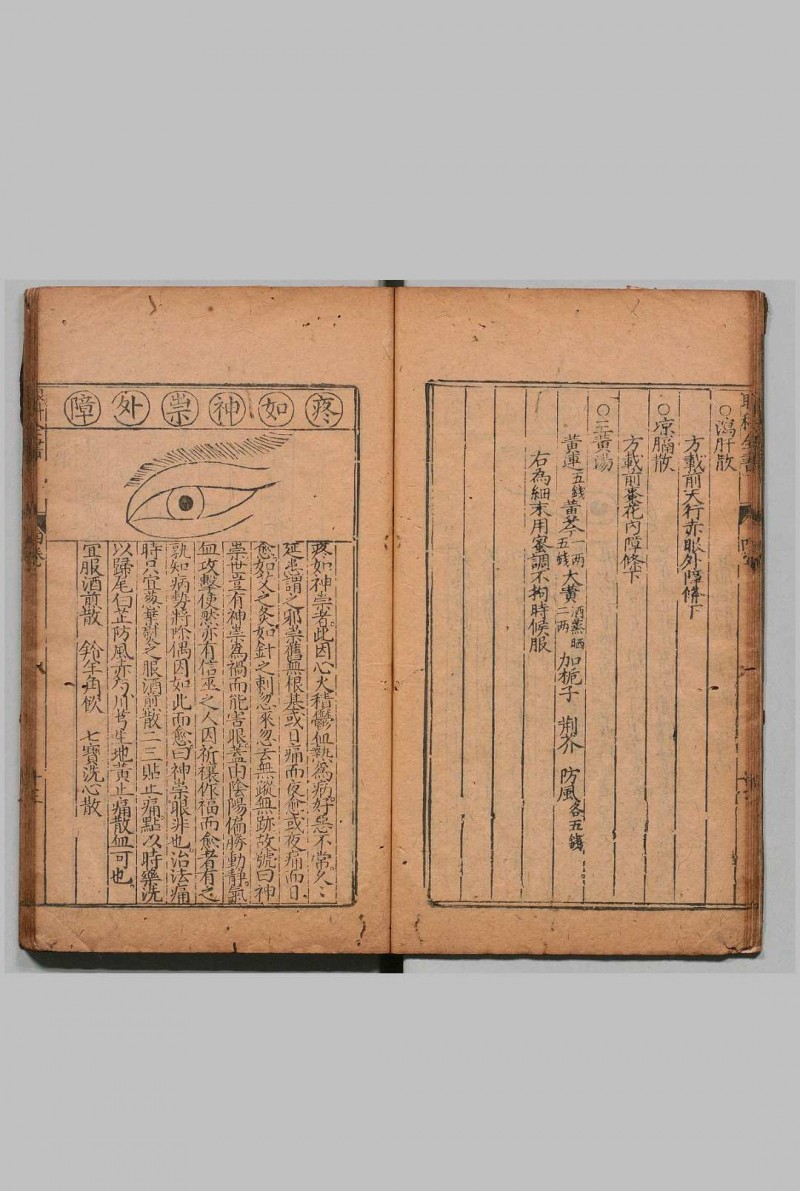 ○瀉肝散
方載前天行赤眼外障條下
○凉膈散
方載前棗花內障條下
○三黃湯
黃連五錢 黃芩一兩五錢 大黃酒蒸晒二兩 加梔子 荆芥 防風各五錢
右為細末用蜜調不拘時候服
疼如神祟外障
疼如神祟者此因心火積鬱血熱為病好惡不常久〻
延患謂之邪祟舊無根基或日痛而夜愈或夜痛而日
愈如艾之灸如針之刺忽來忽去無蹤無跡故號曰神
祟世豈有神祟為禍而能害眼蓋由陰陽偏勝動靜氣
血攻擊使然亦有信巫之人因祈禳作福而愈者有之
孰知病勢將除偶因如此而愈曰神祟眼非也治法痛
時只宜蒸熨之服酒煎散二三貼止痛點以時藥洗
以歸尾白芷防風赤芍川芎生地黃止痛散血可也
宜服酒煎散 羚羊角飲 七寶洗心散